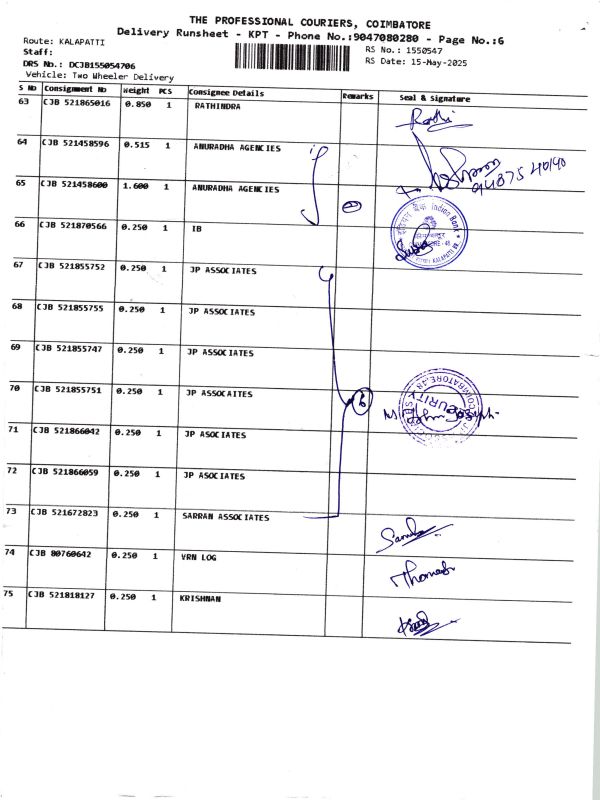 THE PROFESSIONAL COURIERS, COIMBATORE
Delivery Runsheet - KPT - Phone No.:9047080280 - Page No.:6
Route: KALAPATTI
RS No.: 1550547
Staff:
RS Date: 15-May-2025
DRS No.: DCJB155054706
Vehicle: Two Wheeler Delivery
S No Consignment No Weight PCS Consignee Details Remarks Seal & Signature
63 CJB 521865016 0.850 1 RATHINDRA
64 CJB 521458596 0.515 1 ANURADHA AGENCIES
94875 40190
65 CJB 521458600 1.600 1 ANURADHA AGENCIES
2
66 CJB 521870566 0.250 1 IB
इंडियन बैंक Indian Bank
67 CJB 521855752 0.250 1 JP ASSCIATES
68 CJB 521855755 0.250 1 JP ASSOCIATES
69 CJB 521855747 0.250 1 JP ASSOCIATES
70 CJB 521855751 0.250 1 JP ASSOCAITES
6
COIMBATORE.48
SECURITY
71 CJB 521866042 0.250 1 JP ASOCIATES
72 CJB 521866059 0.250 1 JP ASOCIATES
73 CJB 521672823 0.250 1 SARRAN ASSOCIATES
74 CJB 80760642 0.250 1 VRN LOG
Thomesh
75 CJB 521818127 0.250 1 KRISHNAN